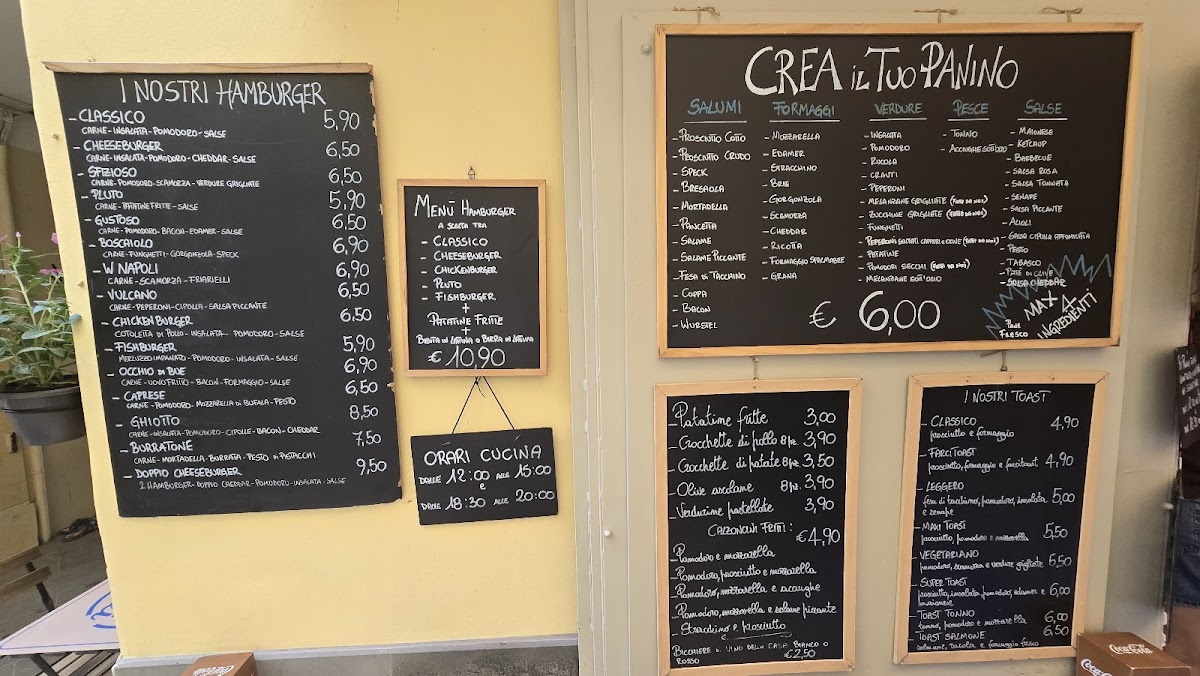 I NOSTRI HAMBURGER
- CLASSICO 5,90
CARNE - INSALATA - POMODORO - SALSE
- CHEESEBURGER 6,50
CARNE - INSALATA - POMODORO - CHEDDAR - SALSE
- SFIZIOSO 6,50
CARNE - POMODORO - SCAMORZA - VERDURE GRIGLIATE
- PLUTO 5,90
CARNE - PATATINE FRITTE - SALSE
- GUSTOSO 6,50
CARNE - POMODORO - BACON - EDAMER - SALSE
- BOSCAIOLO 6,90
CARNE - FUNGHETTI - GORGONZOLA - SPECK
- W NAPOLI 6,90
CARNE - SCAMORZA - FRIARIELLI
- VULCANO 6,50
CARNE - PEPERONI - CIPOLLA - SALSA PICCANTE
- CHICKEN BURGER 6,50
COTOLETTA DI POLLO - INSALATA - POMODORO - SALSE
- FISHBURGER 5,90
MERLUZZO IMPANATO - POMODORO - INSALATA - SALSE
- OCCHIO DI BUE 6,90
CARNE - UOVO FRITTO - BACON - FORMAGGIO - SALSE
- CAPRESE 6,50
CARNE - POMODORO - MOZZARELLA DI BUFALA - PESTO
- GHIOTTO 8,50
CARNE - INSALATA - POMODORO - CIPOLLE - BACON - CHEDDAR
- BURRATONE 7,50
CARNE - MORTADELLA - BURRATA - PESTO DI PISTACCHI
- DOPPIO CHEESEBURGER 9,50
2 HAMBURGER - DOPPIO CHEDDAR - POMODORO - INSALATA - SALSE
MENÙ HAMBURGER
A SCELTA TRA
- CLASSICO
- CHEESEBURGER
- CHICKENBURGER
- PLUTO
- FISHBURGER
+
PATATINE FRITTE
+
BIBITA IN LATTINA O BIRRA IN LATTINA
€ 10,90
ORARI CUCINA
DALLE 12:00 ALLE 15:00
E
DALLE 18:30 ALLE 20:00
CREA IL TUO PANINO
SALUMI
- PROSCIUTTO COTTO
- PROSCIUTTO CRUDO
- SPECK
- BRESAOLA
- MORTADELLA
- PANCETTA
- SALAME
- SALAME PICCANTE
- FESA DI TACCHINO
- COPPA
- BACON
- WURSTEL
FORMAGGI
- MOZZARELLA
- EDAMER
- STRACCHINO
- BRIE
- GORGONZOLA
- SCAMORZA
- CHEDDAR
- RICOTTA
- FORMAGGIO SPALMABILE
- GRANA
VERDURE
- INSALATA
- POMODORO
- RUCOLA
- CRAUTI
- PEPERONI
- MELANZANE GRIGLIATE (FATTE DA NOI)
- ZUCCHINE GRIGLIATE (FATTE DA NOI)
- FUNGHETTI
- PEPERONI SALTATI CAPPERI E OLIVE (FATTI DA NOI)
- PATATINE
- POMODORI SECCHI (FATTI DA NOI)
- MELANZANE SOTT'OLIO
PESCE
- TONNO
- ACCIUGHE SOTT'OLIO
SALSE
- MAIONESE
- KETCHUP
- BARBECUE
- SALSA ROSA
- SALSA TONNATA
- SENAPE
- SALSA PICCANTE
- ALIOLI
- SALSA CIPOLLA AFFUMICATA
- PESTO
- TABASCO
- PATÈ DI OLIVE
- SALSA CHEDDAR
€ 6,00
PANE FRESCO
MAX 4 INGREDIENTI
- Patatine fritte 3,00
- Crocchette di pollo 8 pz. 3,90
- Crocchette di patate 8 pz. 3,50
- Olive ascolane 8 pz. 3,90
- Verdurine pastellate 3,90
CALZONCINI FRITTI: €4,90
- Pomodoro e mozzarella
- Pomodoro, prosciutto e mozzarella
- Pomodoro, mozzarella e acciughe
- Pomodoro, mozzarella e salame piccante
- Stracchino e prosciutto
BICCHIERE di VINO DELLA CASA BIANCO O
ROSSO €2,50
I NOSTRI TOAST
- CLASSICO 4,90
prosciutto e formaggio
- FARCITOAST 4,90
prosciutto, formaggio e farcitoast
- LEGGERO 5,00
fesa di tacchino, pomodoro, insalata
e senape
- MAXI TOAST 5,50
prosciutto, pomodoro e mozzarella
- VEGETARIANO 5,50
pomodoro, scamorza e verdure grigliate
- SUPER TOAST 6,00
prosciutto, insalata, pomodoro, edamer e
maionese
- TOAST TONNO 6,00
tonno, pomodoro e mozzarella
- TOAST SALMONE 6,50
salmone, rucola e formaggio fresco
Coca-Cola
Coca-Cola